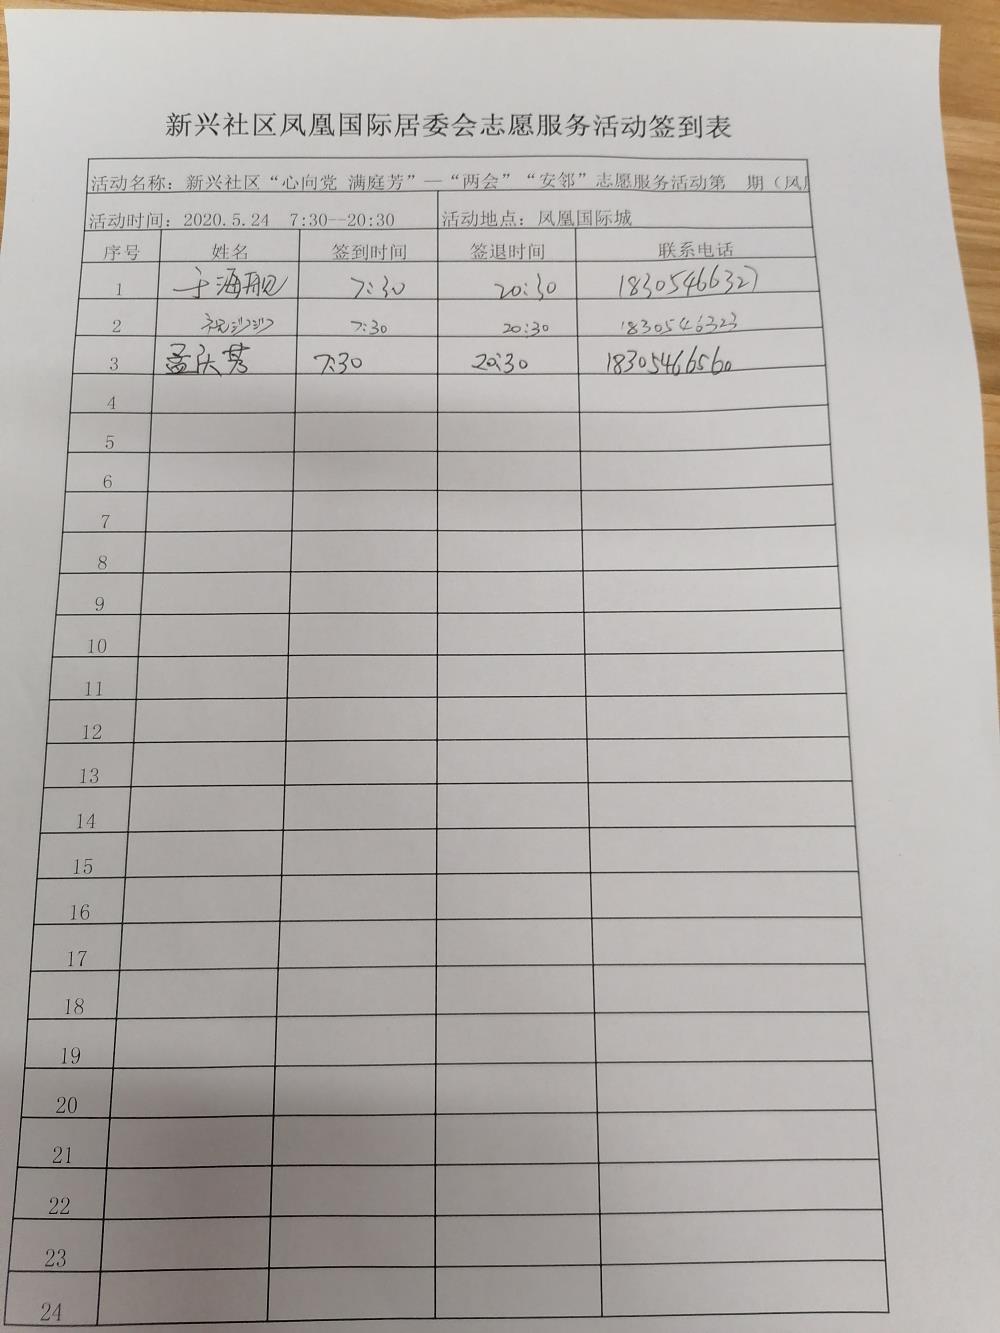 新兴社区凤凰国际居委会志愿服务活动签到表
活动名称：新兴社区“心向党 满庭芳”—“两会”“安邻”志愿服务活动第 期（凤
活动时间：2020.5.24 7:30--20:30 活动地点：凤凰国际城
序号 姓名 签到时间 签退时间 联系电话
1 于海舰 7:30 20:30 18305466327
2 祝沙沙 7:30 20:30 18305466323
3 孟庆 7:30 20:30 18305466560
4
5
6
7
8
9
10
11
12
13
14
15
16
17
18
19
20
21
22
23
24